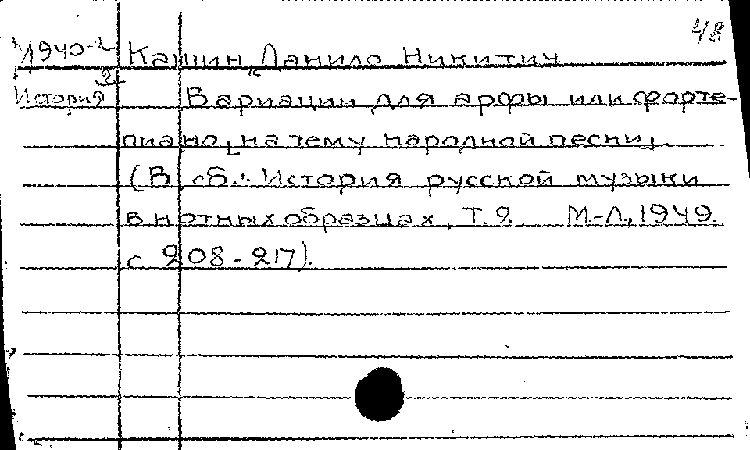 48
1940-2 Кашин, Данило Никитич
История 2 Вариации для арфы или форте-
пиано, на тему народной песни,
(В сб.: История русской музыки
в нотных образцах, Т. 2. М.-Л., 1949.
с 208-217).